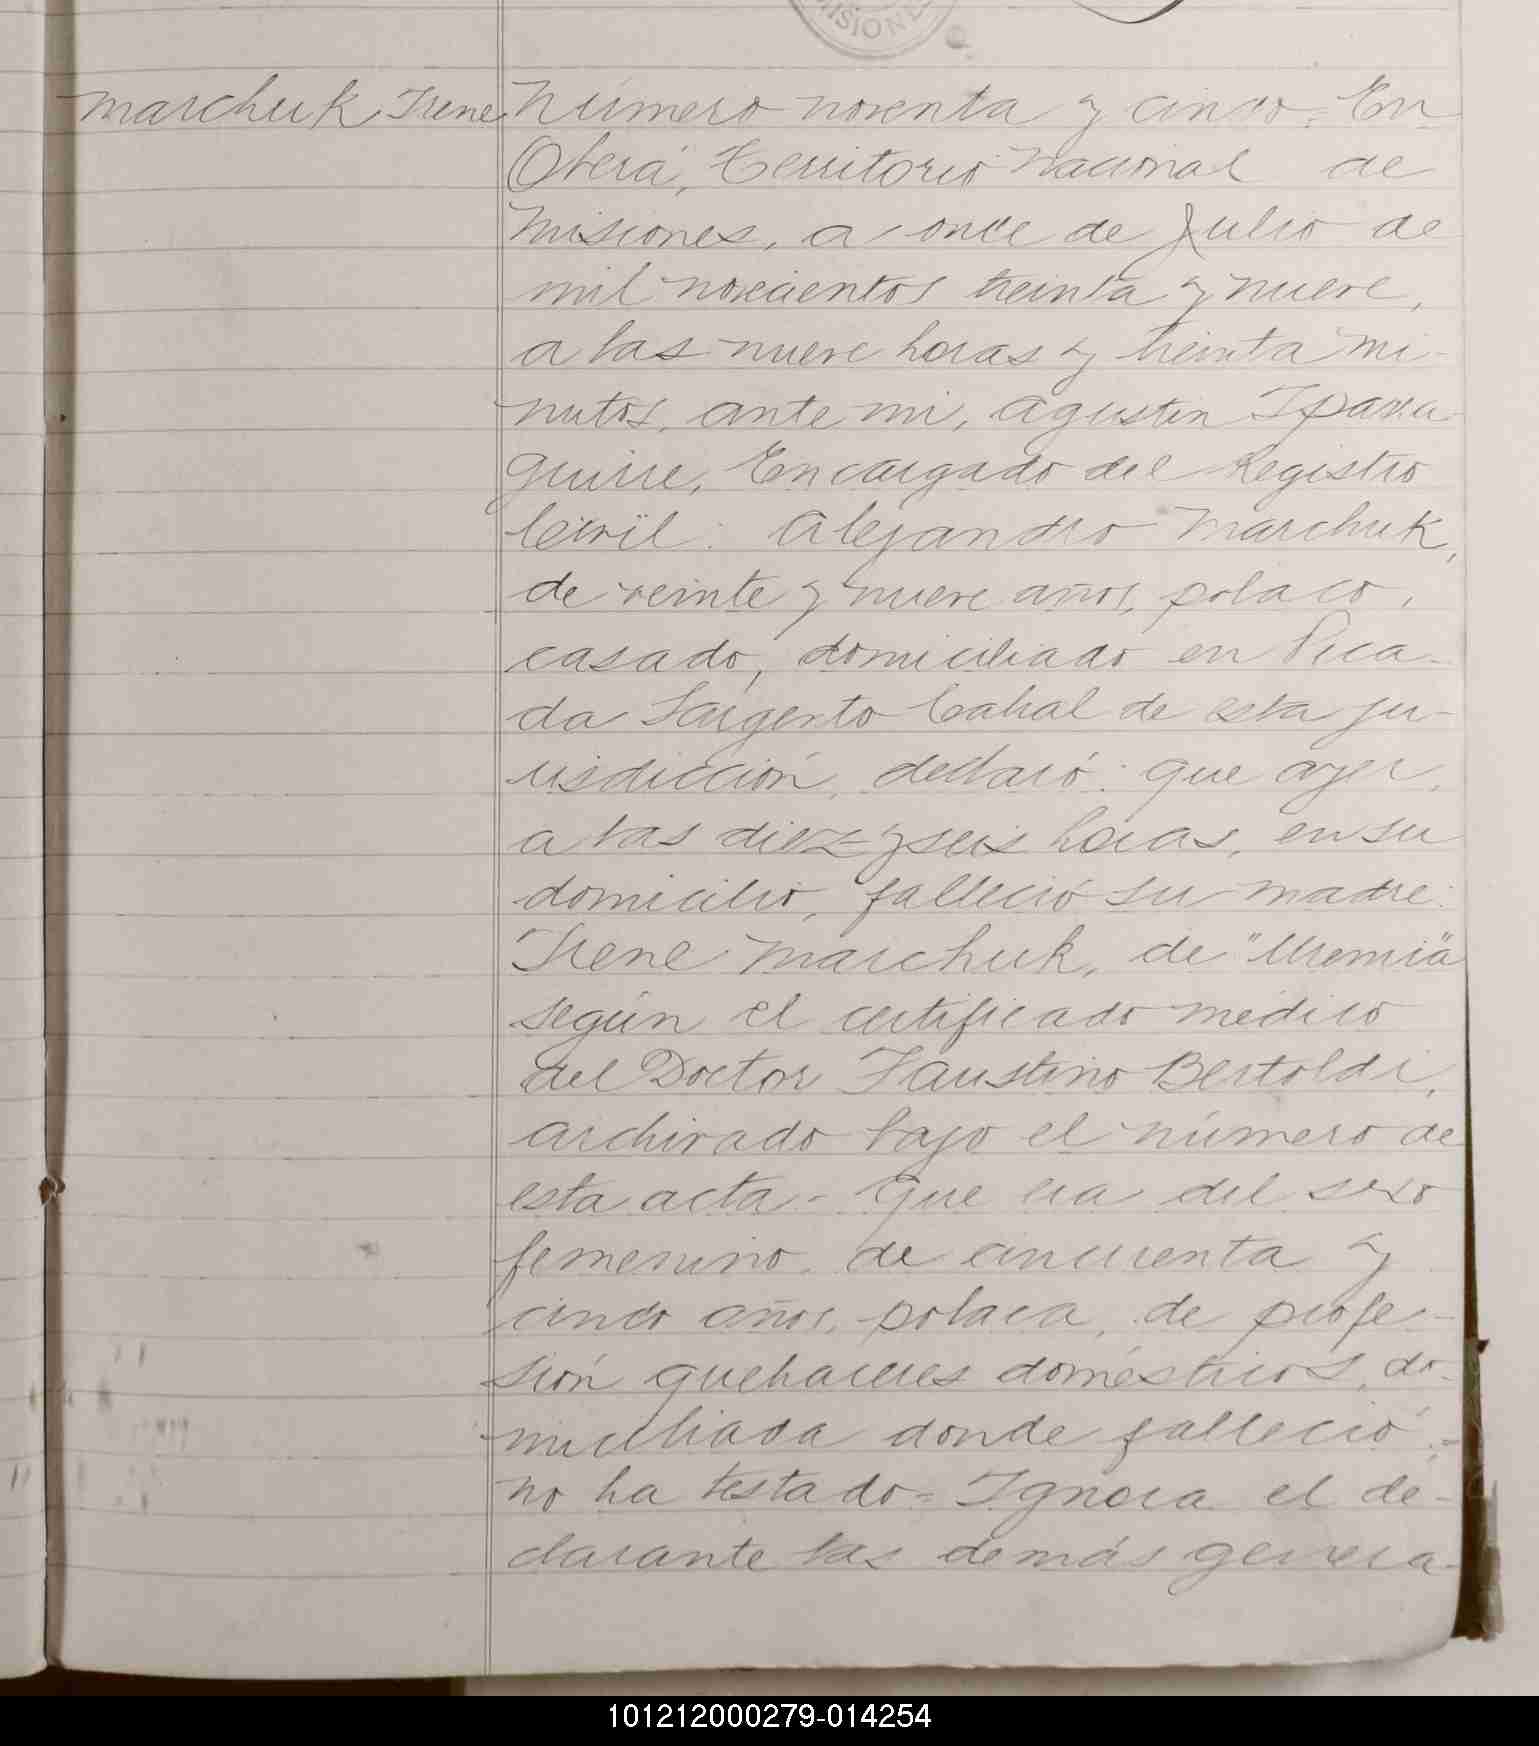 MISIONE
Marchuk Irene
Número noventa y cinco = En
Oberá, Territorio Nacional de
Misiones, a once de Julio de
mil novecientos treinta y nueve,
a las nueve horas y treinta mi-
nutos, ante mi, Agustin Iparra-
guirre, Encargado del Registro
Civil: Alejandro Marchuk,
de veinte y nueve años, polaco,
casado, domiciliado en Pica-
da Sargento Cabral de esta ju-
risdicción, declaró: que ayer,
a las diez y seis horas, en su
domicilio, falleció su madre:
Irene Marchuk, de "Uremia"
según el certificado médico
del Doctor Faustino Bertoldi,
archivado bajo el número de
esta acta - Que era del sexo
femenino, de cincuenta y
cinco años, polaca, de profe-
sión quehaceres domésticos, do-
miciliada donde falleció, =
no ha testado = Ignora el de-
clarante las demás genera-
101212000279-014254